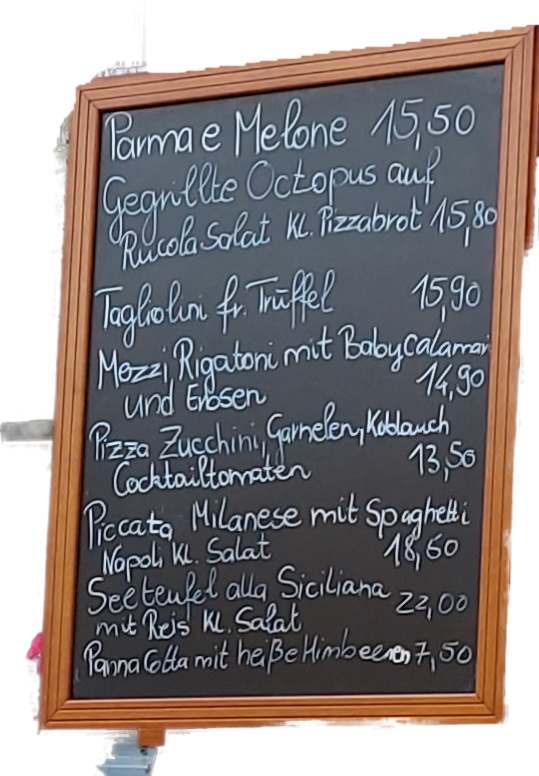 Parma e Melone 15,50
Gegrillte Octopus auf
Rucola Salat Kl. Pizzabrot 15,80
Tagliolini fr. Trüffel 15,90
Mezzi Rigatoni mit Babycalamari
und Erbsen 14,90
Pizza Zucchini, Garnelen, Koblauch
Cocktailtomaten 13,50
Piccata Milanese mit Spaghetti
Napoli Kl. Salat 18,60
Seeteufel alla Siciliana
mit Reis Kl. Salat 22,00
Panna Cotta mit heiße Himbeeren 7,50